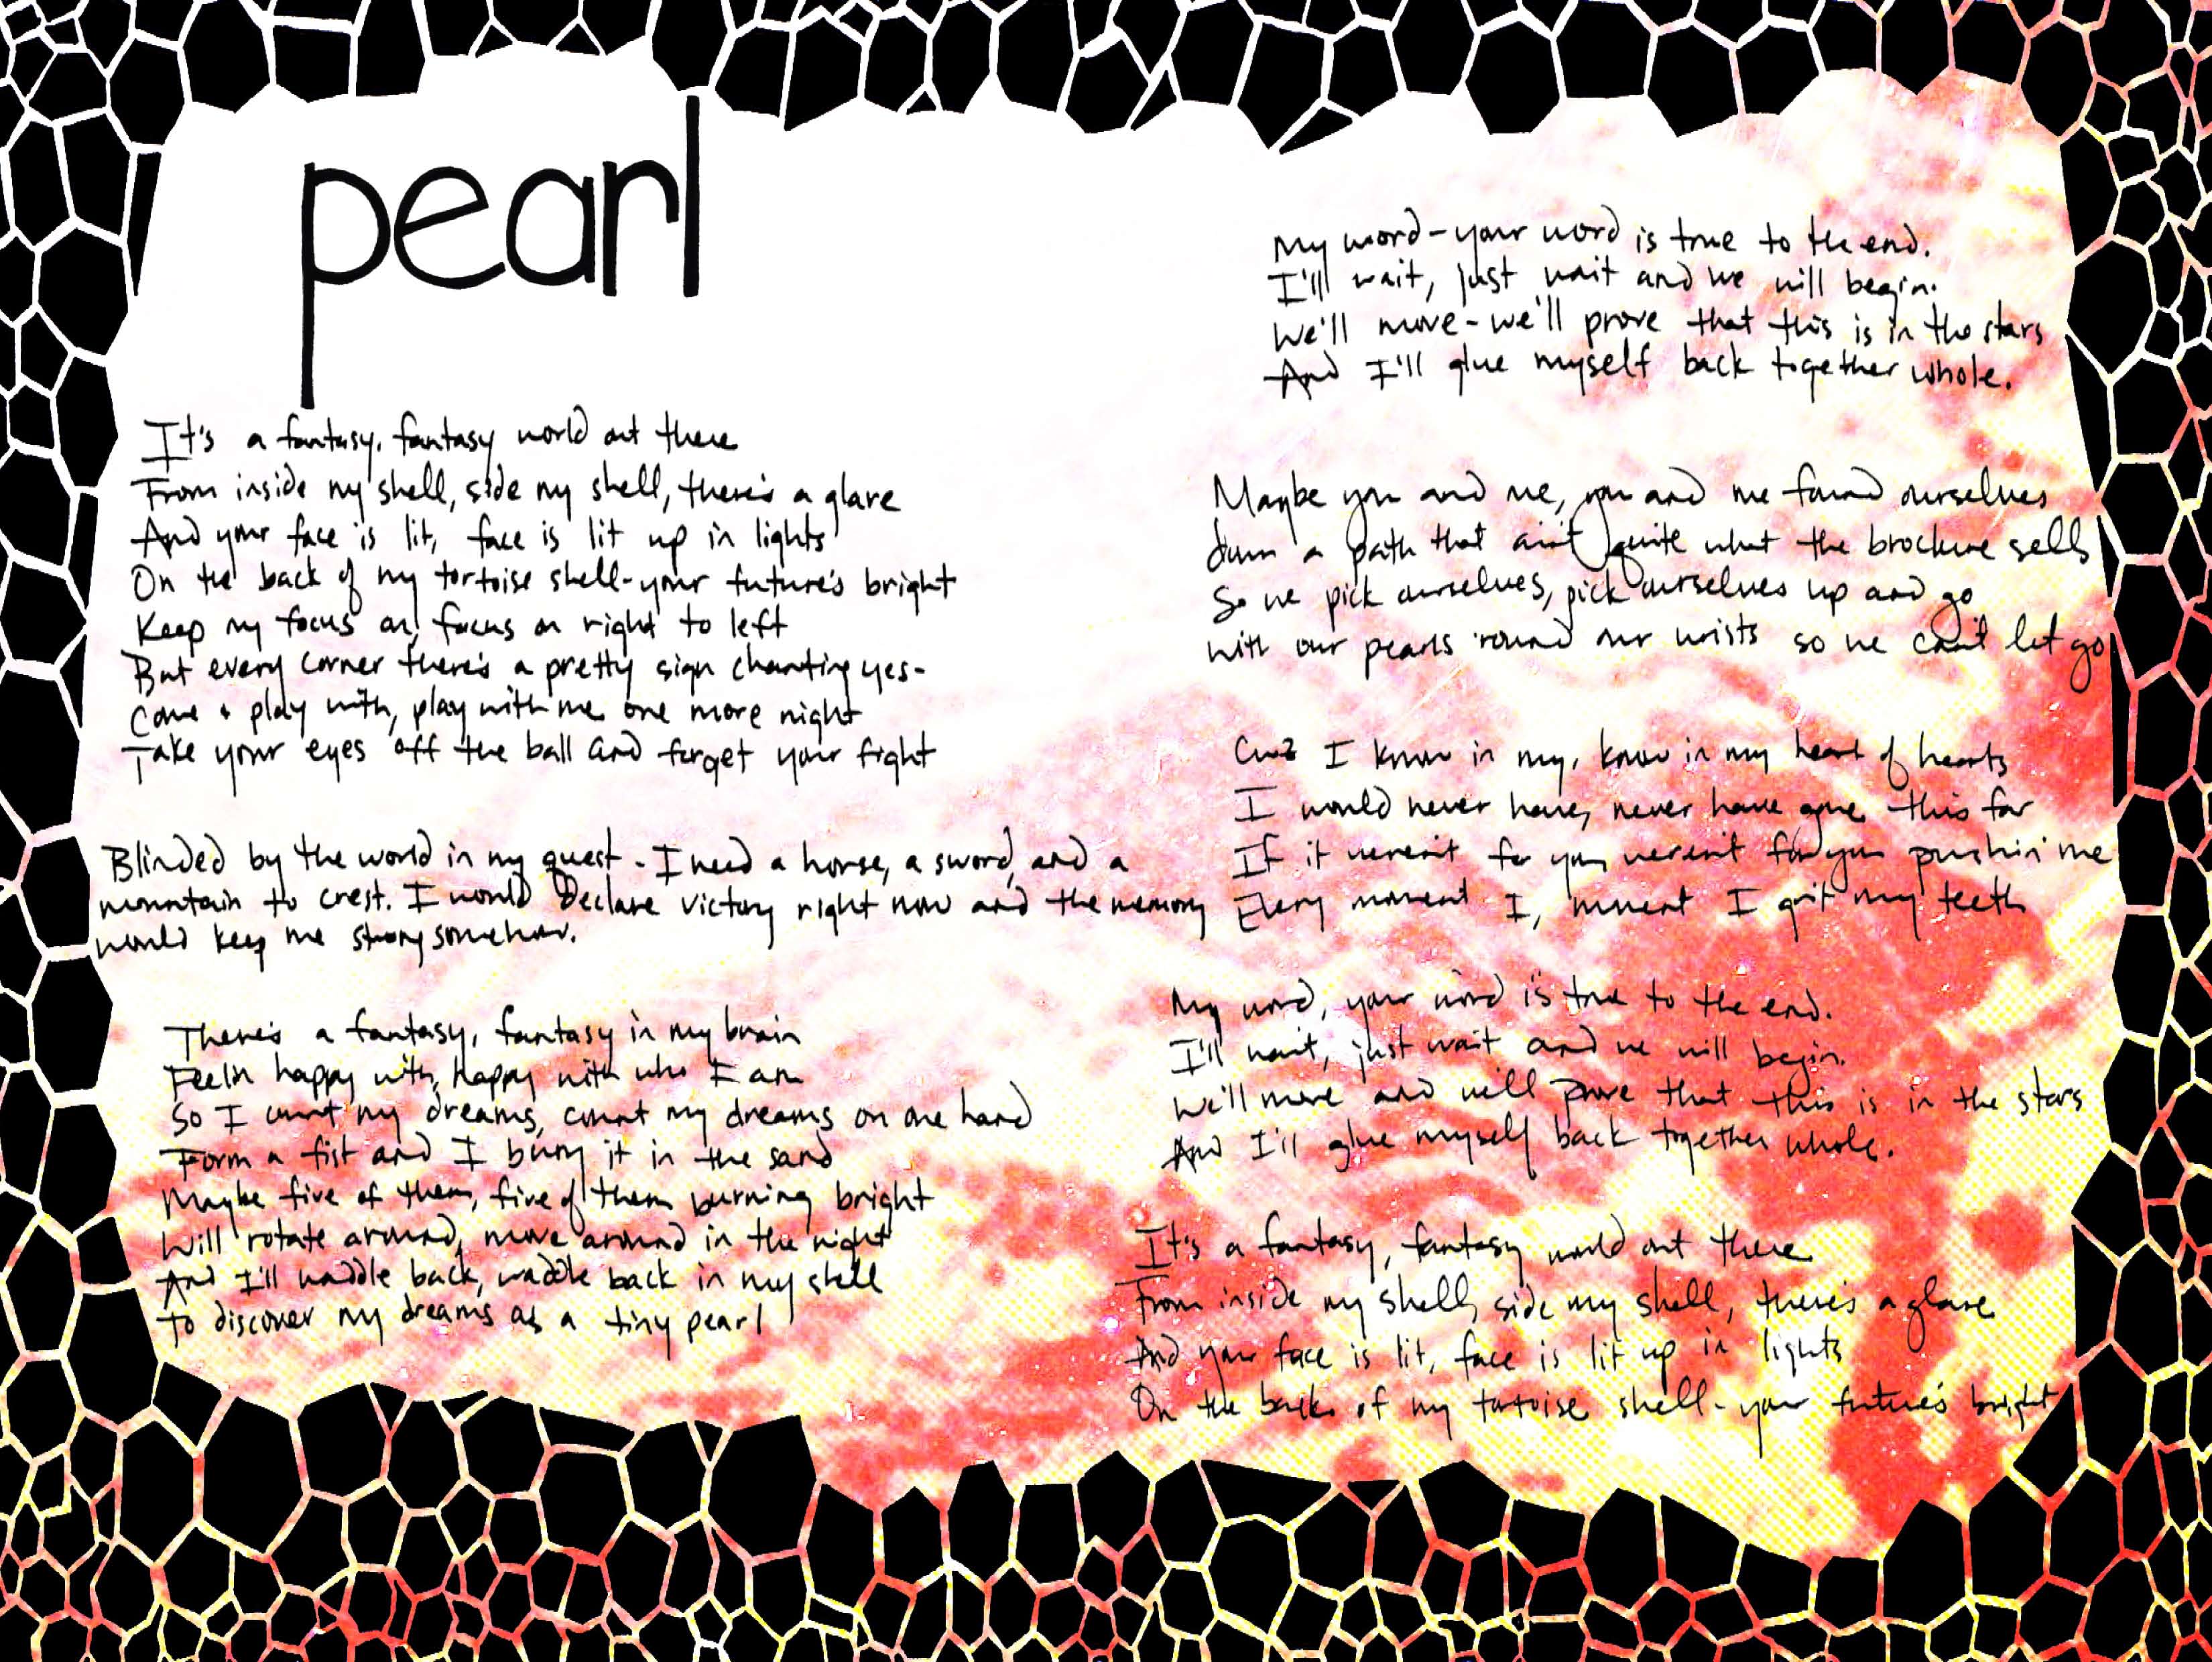 pearl
It's a fantasy, fantasy world out there
From inside my shell, side my shell, there's a glare
And your face is lit, face is lit up in lights
On the back of my tortoise shell-your future's bright
Keep my focus on, focus on right to left
But every corner there's a pretty sign chanting yes-
Come + play with, play with me one more night
Take your eyes off the ball and forget your fight
Blinded by the world in my quest - I need a horse, a sword, and a
mountain to crest. I would Declare victory right now and the memory
would keep me strong somehow.
There's a fantasy, fantasy in my brain
Feelin happy with, happy with who I am
So I count my dreams, count my dreams on one hand
Form a fist and I bury it in the sand
Maybe five of them, five of them burning bright
Will rotate around, move around in the night
And I'll waddle back, waddle back in my shell
To discover my dreams as a tiny pearl
My word-your word is true to the end.
I'll wait, just wait and we will begin.
We'll move-we'll prove that this is in the stars
And I'll glue myself back together whole.
Maybe you and me, you and me found ourselves
down a path that ain't quite what the brochure sells
So we pick ourselves, pick ourselves up and go
with our pearls 'round our wrists so we can't let go
Cuz I know in my, know in my heart of hearts
I would never have, never have gone this far
If it weren't for you, weren't for you pushin' me
Every moment I, moment I grit my teeth
My word, your word is true to the end.
I'll wait, just wait and we will begin.
We'll move and we'll prove that this is in the stars
And I'll glue myself back together whole.
It's a fantasy, fantasy world out there
From inside my shell, side my shell, there's a glare
And your face is lit, face is lit up in lights
On the back of my tortoise shell-your future's bright